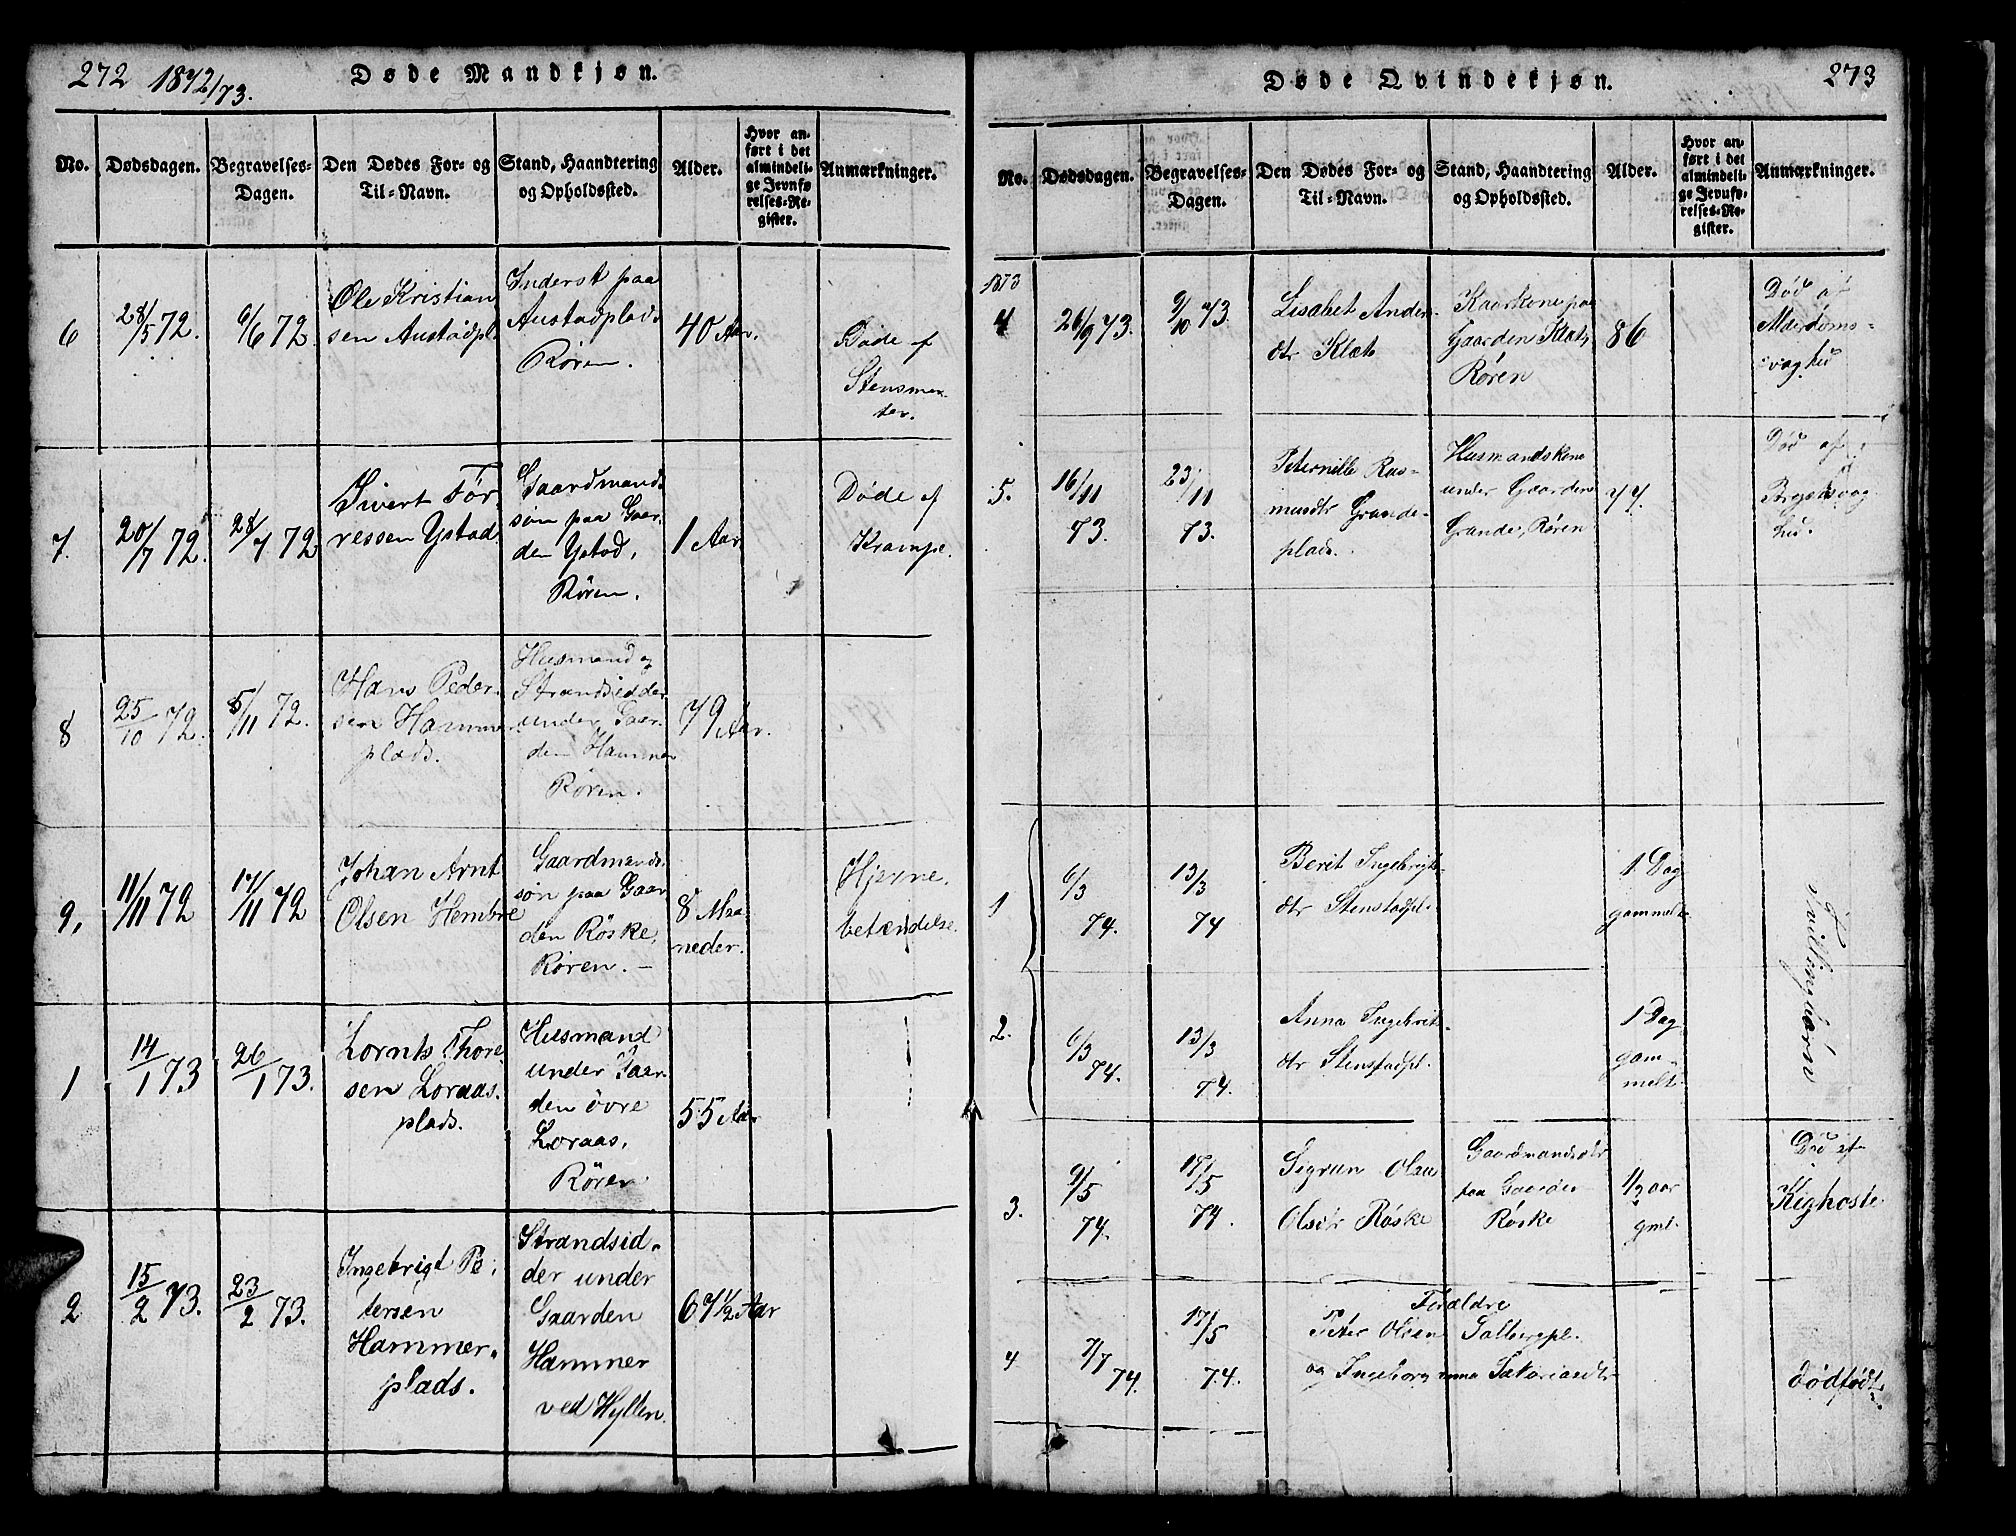 272 1872/73.
Døde Mandkjøn.
No.
Dødsdagen.
Begravelses-
Dagen.
Den Dødes For- og
Til-Navn.
Stand, Haandtering
og Opholdssted.
Alder.
Hvor an-
ført i det
almindeli-
ge Jevnfø
relses-Re-
gister.
Anmærkninger.
6
28/5 72.
9/6 72.
Ole Kristian
sen Austadpl.
Inderst paa
Austadplads
Røren.
40 Aar.
Døde af
7.
20/7 72.
28/7 72
Sivert Tør
ressen Ystad.
Gaardmands
søn paa Gaar
den Ystad,
Røren.
1 Aar
Døde af
Krampe.
8
25/10 72.
5/11 72.
Hans Peder-
sen Hammer
plads.
Husmand og
Strandsidder
under Gaar
den Hammer
Røren.
79 Aar.
9,
11/11 72
17/11 72
Johan Arnt
Olsen Hembre
Gaardmands.
søn paa Gaar
den Røske,
Røren. —
8 Maa
neder.
Hjerne.
betændelse.
1
14/1 73
26/1 73.
Lornts Thore
sen Loraas.
plads.
Husmand
under Gaar
den øvre
Loraas,
Røren.
55 Aar
2
15/2 73.
23/2 73.
Ingebrigt Pe,
tersen
Hammer.
plads.
Strandsid.
der under
Gaarden
Hammer
ved Hyllen.
67 1/2 Aar
Døde Qvindekjøn.
273
No.
Dødsdagen.
Begravelses-
Dagen.
Den Dødes For- og
Til-Navn.
Stand, Haandtering
og Opholdssted.
Alder.
Hvor an-
ført i det
almindeli-
ge Jevnfø-
relses-Re-
gister.
Anmærkninger.
1873
4
26/9 73.
9/10 73
Lisabet Anders
dtr Klæt
Kaarkone paa
Gaarden Klæt,
Røren
86
Død af
Alderdoms-
svaghed
5.
16/11
73.
23/11
73.
Peternille Ras-
musdtr Grande-
plads.
Husmandskone
under Gaarden
Grande, Røren
77.
Død af
Brystsvag
hed.
1
6/3
74.
13/3
74
Berit Ingebrigts-
dtr Stenstadpl.
1 Dag
gammelt.
Tvillingbørn
2.
6/3
74.
13/3
74.
Anna Ingebrit.
dtr Stenstadpl.
1 Dag
gam-
melt.
3.
9/5
74.
17/5
74.
Sigrun Olau
Olsdr Røske
Gaardmandsdtr
paa Gaarden
Røske
1/2 aar
gml.
Død af
Kighoste.
4
7/7
74.
17/5
74.
Forældre
Peter Olsen Salbergpl.
og Ingeborganna Sakariasdtr
dødfødt.